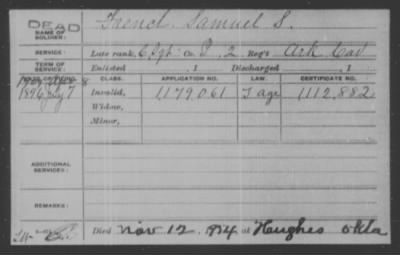 DEAD
NAME OF SOLDIER: French, Samuel S.
SERVICE: Late rank, Co. 2 Reg't Ark Cav
TERM OF SERVICE: Enlisted , 1 Discharged , 1
DATE OF FILING. CLASS. APPLICATION NO. LAW. CERTIFICATE NO.
1896 July 7 Invalid, 1,179,061 1,112,882
Widow,
Minor,
ADDITIONAL SERVICES:
REMARKS:
Died Nov 12, 1924 at Hughes Okla